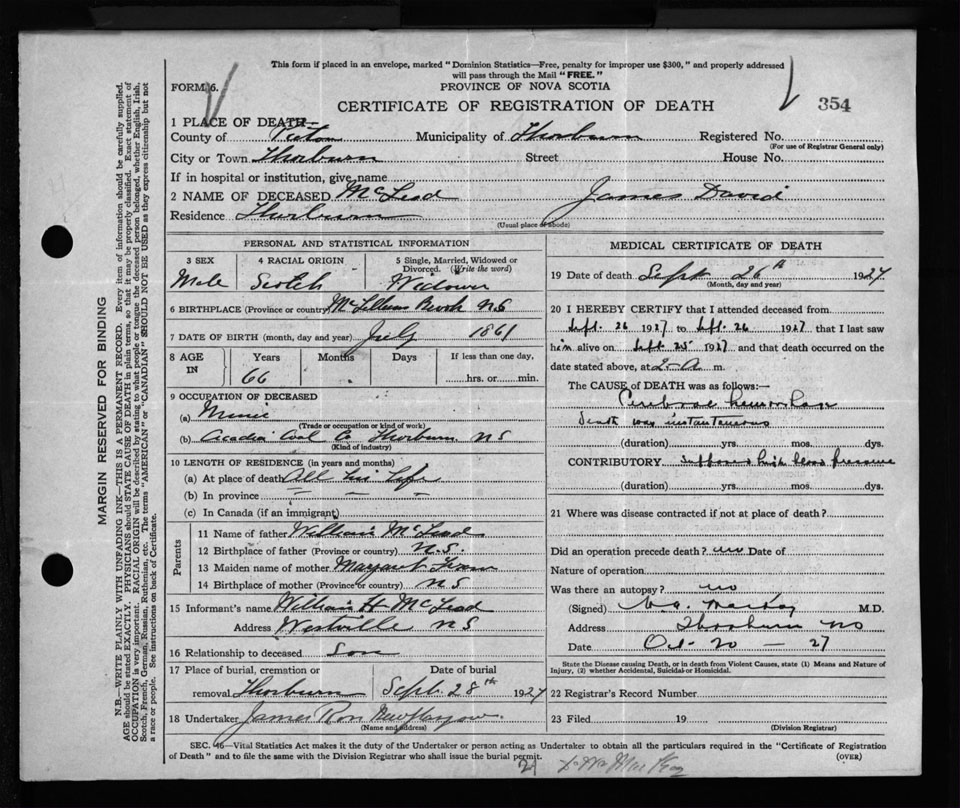 This form if placed in an envelope, marked "Dominion Statistics—Free, penalty for improper use $300," and properly addressed
will pass through the Mail "FREE."
FORM 6.
PROVINCE OF NOVA SCOTIA
CERTIFICATE OF REGISTRATION OF DEATH
354
1 PLACE OF DEATH—
County of Pictou Municipality of Thorburn Registered No.
(For use of Registrar General only)
City or Town Thorburn Street House No.
If in hospital or institution, give name
2 NAME OF DECEASED McLeod James David
Residence Thorburn
(Usual place of abode)
PERSONAL AND STATISTICAL INFORMATION
3 SEX 4 RACIAL ORIGIN 5 Single, Married, Widowed or Divorced. (Write the word)
Male Scotch Widower
6 BIRTHPLACE (Province or country) McLellans Brook N S
7 DATE OF BIRTH (month, day and year) July 1861
8 AGE IN Years Months Days If less than one day,
66 hrs. or min.
9 OCCUPATION OF DECEASED
(a) Miner
(Trade or occupation or kind of work)
(b) Acadia Coal Co Thorburn N S
(Kind of industry)
10 LENGTH OF RESIDENCE (in years and months)
(a) At place of death All his life
(b) In province — — —
(c) In Canada (if an immigrant)
Parents
11 Name of father William McLeod
12 Birthplace of father (Province or country) N.S.
13 Maiden name of mother Margaret
14 Birthplace of mother (Province or country) N S
15 Informant's name William H McLeod
Address Westville N S
16 Relationship to deceased Son
17 Place of burial, cremation or Date of burial
removal Thorburn Sept. 28th 1927
18 Undertaker James Ross New Glasgow
(Name and address)
MEDICAL CERTIFICATE OF DEATH
19 Date of death Sept 26th 1927
(Month, day and year)
20 I HEREBY CERTIFY that I attended deceased from
Sept. 26 1927 to Sept. 26 1927 that I last saw
him alive on Sept 25 1927 and that death occurred on the
date stated above, at 2- a m.
The CAUSE of DEATH was as follows:—
Cerebral hemorrhage
Death was instantaneous
(duration) yrs. mos. dys.
CONTRIBUTORY Suppose high blood pressure
(duration) yrs. mos. dys.
21 Where was disease contracted if not at place of death?
Did an operation precede death? no Date of
Nature of operation
Was there an autopsy? no
(Signed) M.D.
Address Thorburn N S
Date Oct. 20 — 27
State the Disease causing Death, or in death from Violent Causes, state (1) Means and Nature of
Injury, (2) whether Accidental, Suicidal or Homicidal.
22 Registrar's Record Number
23 Filed 19
(Division Registrar)
SEC. 46—Vital Statistics Act makes it the duty of the Undertaker or person acting as Undertaker to obtain all the particulars required in the "Certificate of Registration
of Death" and to file the same with the Division Registrar who shall issue the burial permit. (OVER)
MARGIN RESERVED FOR BINDING
N.B.—WRITE PLAINLY WITH UNFADING INK—THIS IS A PERMANENT RECORD. Every item of information should be carefully supplied.
AGE should be stated EXACTLY. PHYSICIANS should STATE CAUSE OF DEATH in plain terms, so that it may be properly classified. Exact statement of
OCCUPATION is very important. RACIAL ORIGIN will be described by stating to what people or tongue the deceased person belonged, whether English, Irish,
Scotch, French, German, Russian, Ruthenian, etc. The terms "AMERICAN" or "CANADIAN" SHOULD NOT BE USED as they express citizenship but not
a race or people. See instructions on back of Certificate.